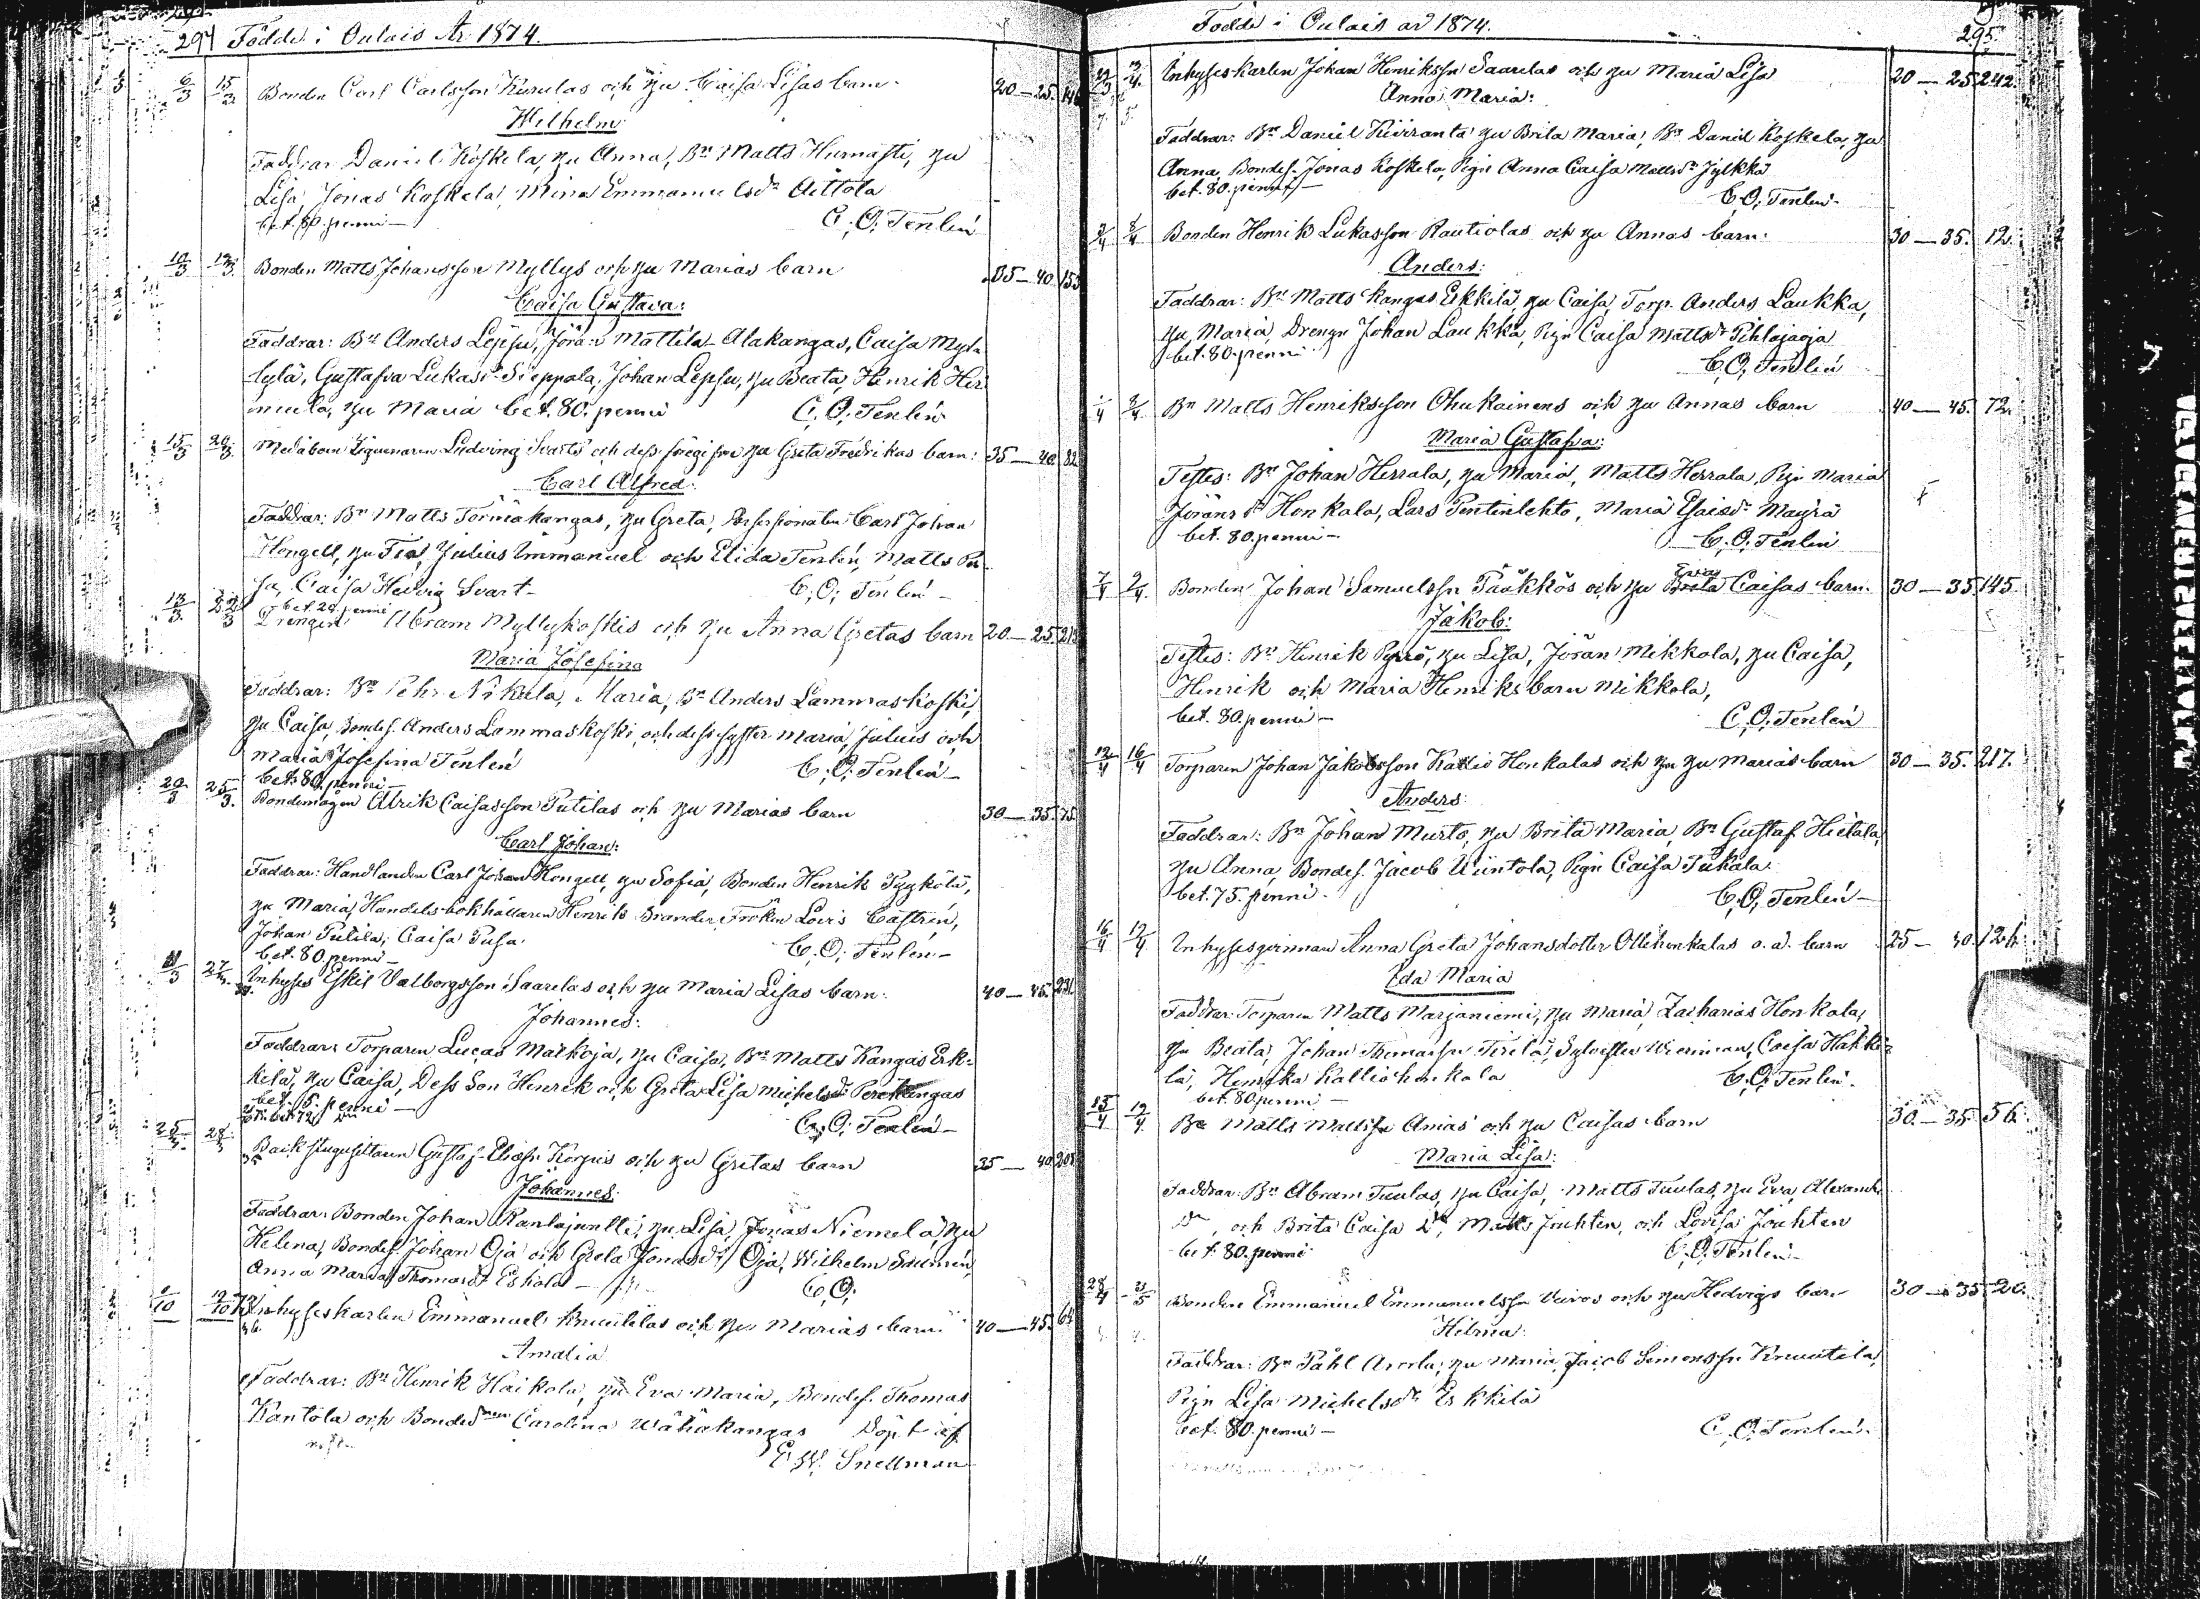 294 Födde i Oulais År 1874.
6/3 15/3 Bonden Carl Carlsson Kurulas och hu Caisa Lisas barn 20–25.
Wilhelm
Faddrar Daniel Koskela, hu Anna, Bn Matts Hurnasti, hu
Lisa, Jonas Koskela, Mina Emmanuelsdr Aittola
bet. 80. penni — C. O. Tenlén
10/3 Bonden Matts Johansson Myllys och hu Marias barn 35–40 155
Caisa Gustava:
Faddrar: Bn Anders Lepsu, Jöran Mattila-Alakangas, Caisa Myl-
lylä, Gustafva Lukasdr Sieppala, Johan Lepsu, hu Beata, Henrik Her
mula, hu Maria bet. 80. penni C. O. Tenlén
15/3 20/3 Ludvig Svarts och dess hu Greta Fredrikas barn: 35–40 82
Carl Alfred.
Faddrar: Bn Matts Törmäkangas, hu Greta, Carl Johan
Hongell, hu Julius Immanuel och Elida Tenlén, Matts Pu
sa, Caisa Hedvig Svart — C. O. Tenlén —
bet. 20. penni
13/3 22/3 Drengen Abram Myllykoskis och hu Anna Gretas barn 20–25
Maria Josefina
Faddrar: Bn Pehr Nikula, Maria, Bn Anders Lammaskoski,
hu Caisa, Bondes. Anders Lammaskoski, och dess syster Maria, Julius och
Maria Josefina Tenlén C. O. Tenlén —
bet. 80. penni —
20/3 25/3. Bondemågen Alrik Caisasson Putilas och hu Marias barn 30–35. 75
Carl Johan:
Faddrar: Handlanden Carl Johan Hongell, hu Sofia, Bonden Henrik Pyykölä,
hu Maria, Handelsbokhållaren Henrik Brander, Fröken Lovis Castrén,
Johan Putila, Caisa Pusa. C. O. Tenlén —
bet. 80. penni —
Inhyses Eskil Valborgsson Saarelas och hu Maria Lisas barn: 40–45. 231
Johannes:
Faddrar: Torparen Lucas Matkoja, hu Caisa, Bn Matts Kangas Erk-
kilä, hu Caisa, Dess Son Henrik och Greta Lisa Michelsdr Perekangas
C. O. Tenlén —
Backstugusittaren Gustaf Eliass Korpis och hu Gretas barn 35–40
Johannes:
Faddrar: Bonden Johan Rantajuntti, hu Lisa, Jonas Niemelä, hu
Helena, Bondes. Johan Oja och Greta Jonasdr Oja, Wilhelm
Anna Maria Thomasdr Eskola — C. O.
Inhyseskarlen Emmanuel Knuutilas och hu Marias barn 40–45. 64
Amalia
Faddrar: Bn Henrik Haikola, hu Eva Maria, Bondes. Thomas
Kantola och Carolina Wähäkangas Döpt af
E. W. Snellman
Födde i Oulais år 1874. 295.
Inhyseskarlen Johan Henrikssn Saarelas och hu Maria Lisa 20–25. 242.
Anna Maria:
Faddrar: Bn Daniel Kiviranta hu Brita Maria, Bn Daniel Koskela, hu
Anna, Bondes. Jonas Koskela, Pign Anna Caisa Mattsdr Jylkkä
bet. 80. penni — C. O. Tenlén —
Bonden Henrik Lukasson Rautiolas och hu Annas barn: 30–35. 12.
Anders:
Faddrar: Bn Matts Kangas Erkkilä, hu Caisa, Torp. Anders Laukka,
hu, Maria, Drengn Johan Laukka, Pign Caisa Mattsdr Pihlajaoja
bet. 80. penni C. O. Tenlén
Bn Matts Henriksson Ohukainens och hu Annas barn 40–45. 72.
Maria Gustafva:
Testes: Bn Johan Herrala, hu Maria, Matts Herrala, Pign Maria
Jöransdr Honkala, Lars Pentinlehto, Maria Esaisdr Mäyrä
bet. 80. penni — C. O. Tenlén
7/4 9/4 Bonden Johan Samuelssn Tääkkös och hu Brita Caisas barn. 30–35. 145.
Jakob:
Testes: Bn Henrik Pyrrö, hu Lisa, Jöran Mikkola, hu Caisa,
Henrik och Maria Henriks barn Mikkola,
bet. 80. penni — C. O. Tenlén
12/4 16/4 Torparen Johan Jakobsson Kallio Honkalas och hu Marias barn 30–35. 217.
Anders:
Faddrar: Bn Johan Murto, hu Brita Maria, Bn Gustaf Hietala,
hu Anna, Bondes. Jacob Uuntola, Pign Caisa Jukala
bet. 75. penni. C. O. Tenlén —
16/4 19/4 Inhysesqvinnan Anna Greta Johansdotter Ollihonkalas o. ä. barn 25–30. 126.
Ida Maria
Faddrar: Torparen Matts Marjaniemi, hu Maria, Zacharias Honkala,
hu Beata, Johan Thomassn Tirilä, Sylvester Wierimaa, Caisa Hakki-
lä, Henrika Kalliohonkala C. O. Tenlén.
bet. 80. penni —
15/4 19/4 Bn Matts Mattssn Anias och hu Caisas barn 30–35. 56.
Maria Lisa:
Faddrar: Bn Abram Tuulas, hu Caisa, Matts Tuulas, hu Eva,
och Brita Caisa Matts Juchten, och Lovisa Juchten
bet. 80. penni C. O. Tenlén —
Bonden Emmanuel Emmanuelssn Veivos och hu Hedvigs barn 30–35. 20.
Hilma:
Faddrar: Bn Påhl Arola, hu Maria, Jacob Simonssn Knuutila,
Pign Lisa Michelsdr Erkkilä
bet. 80. penni — C. O. Tenlén.